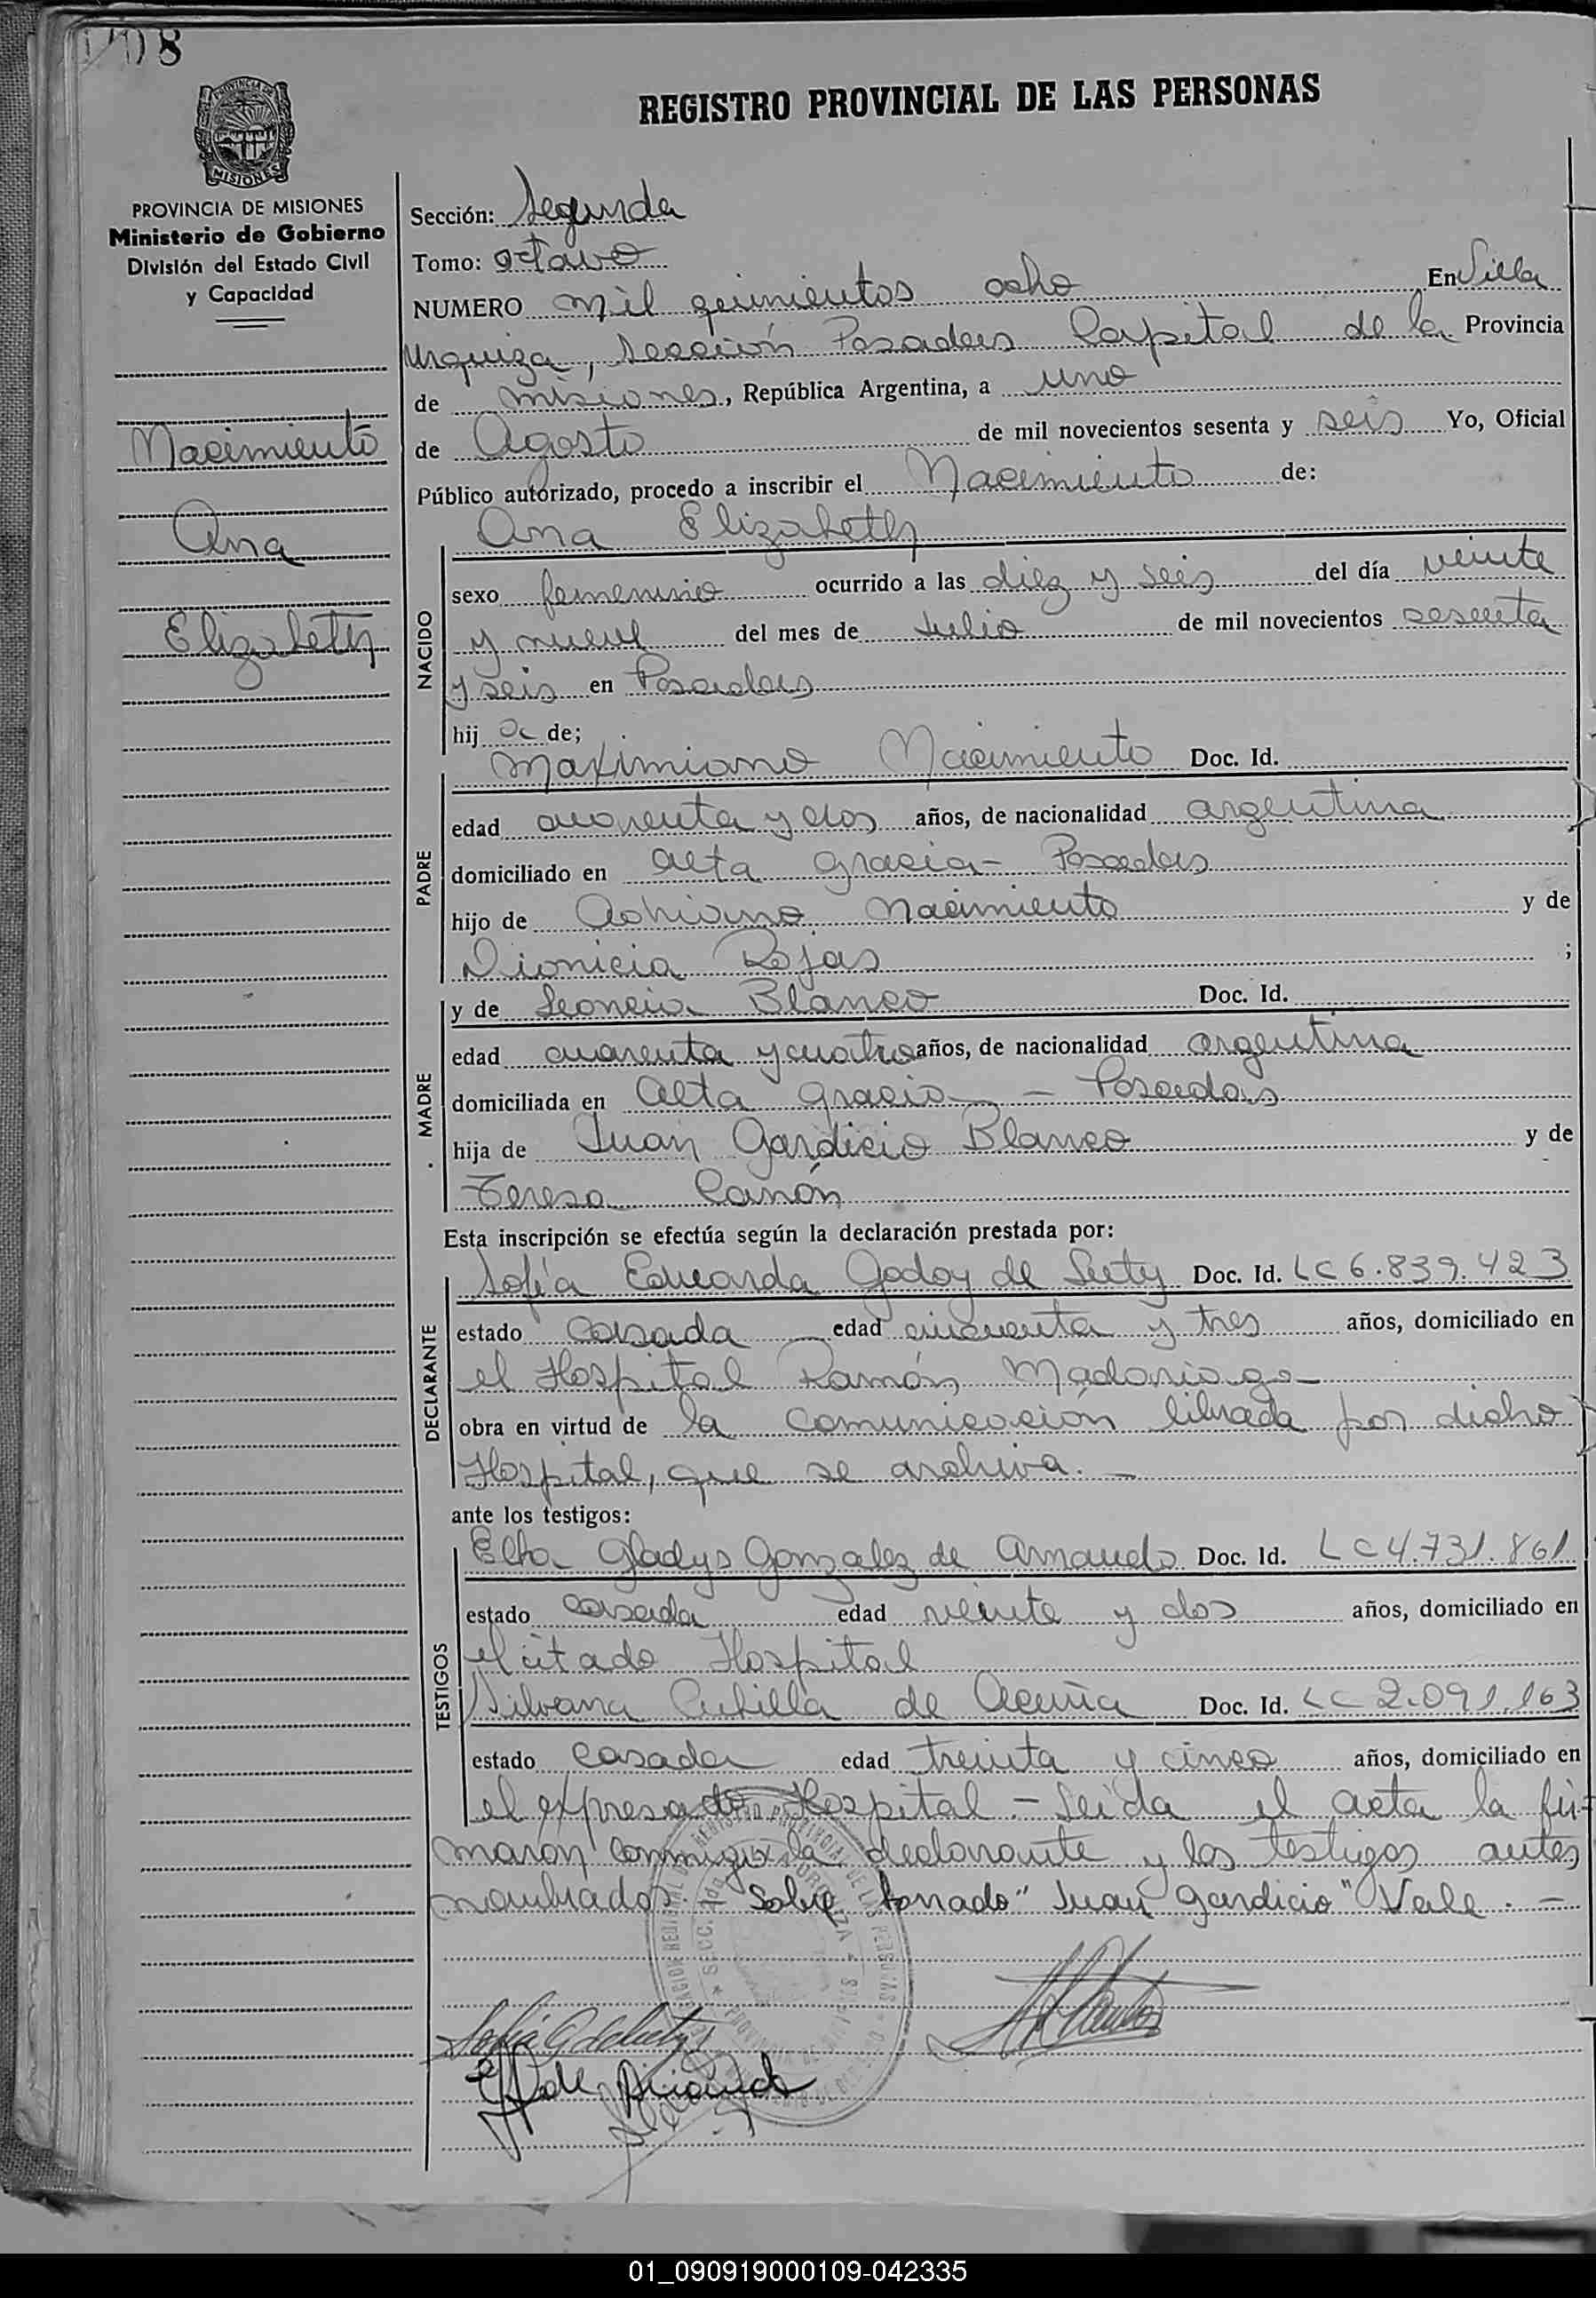 08
REGISTRO PROVINCIAL DE LAS PERSONAS
MISIONES
PROVINCIA DE MISIONES
Ministerio de Gobierno
División del Estado Civil
y Capacidad
Nacimiento
Ana
Elizabeth
Sección: Segunda
Tomo: octavo
NUMERO mil quinientos ocho En Villa
Urquiza, Sección Posadas Capital de la Provincia
de misiones, República Argentina, a uno
de Agosto de mil novecientos sesenta y seis Yo, Oficial
Público autorizado, procedo a inscribir el Nacimiento de:
Ana Elizabeth
NACIDO
sexo femenino ocurrido a las diez y seis del día veinte
y nueve del mes de Julio de mil novecientos sesenta
y seis en Posadas
hij a de;
Maximiano Nacimiento Doc. Id.
PADRE
edad cuarenta y dos años, de nacionalidad argentina
domiciliado en alta gracia - Posadas
hijo de Adriano Nacimiento y de
Dionicia Rojas ;
y de Leoncia Blanco Doc. Id.
MADRE
edad cuarenta y cuatro años, de nacionalidad argentina
domiciliada en alta gracia - Posadas
hija de Juan Gardicio Blanco y de
Teresa Canón
Esta inscripción se efectúa según la declaración prestada por:
Sofía Eduarda Godoy de Doc. Id. LC 6.839.423
DECLARANTE
estado casada edad cincuenta y tres años, domiciliado en
el Hospital Ramón Madariaga
obra en virtud de la comunicación librada por dicho
Hospital, que se archiva. -
ante los testigos:
Elba Gladys Gonzalez de Doc. Id. LC 4.731.861
TESTIGOS
estado casada edad veinte y dos años, domiciliado en
el citado Hospital
Silvana Cubilla de Acuña Doc. Id. LC 2.091.163
estado casada edad treinta y cinco años, domiciliado en
el expresado Hospital - Leída el acta la fir-
maron conmigo la declarante y los testigos antes
nombrados. Sobre borrado "Juan gardicio" Vale. -
01_090919000109-042335